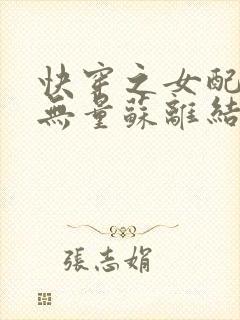 快穿之女配
無量蘇離結
張志娟